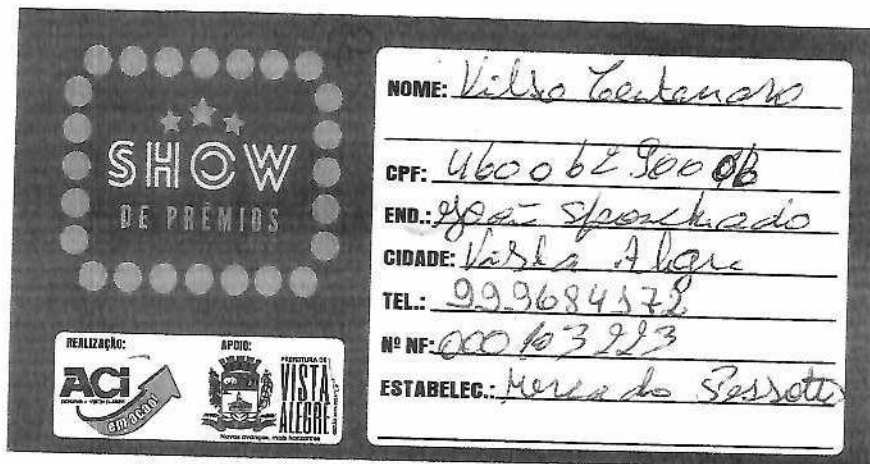 SHOW
DE PRÊMIOS
REALIZAÇÃO:
ACI
em ação!
APOIO:
PREFEITURA DE
VISTA
ALEGRE
Novos avanços, mais horizontes
NOME: Vilso
CPF:
END.: João Sponchiado
CIDADE: Vista Alegre
TEL.: 999684572
Nº NF: 000103223
ESTABELEC.: Mercado Pessotto